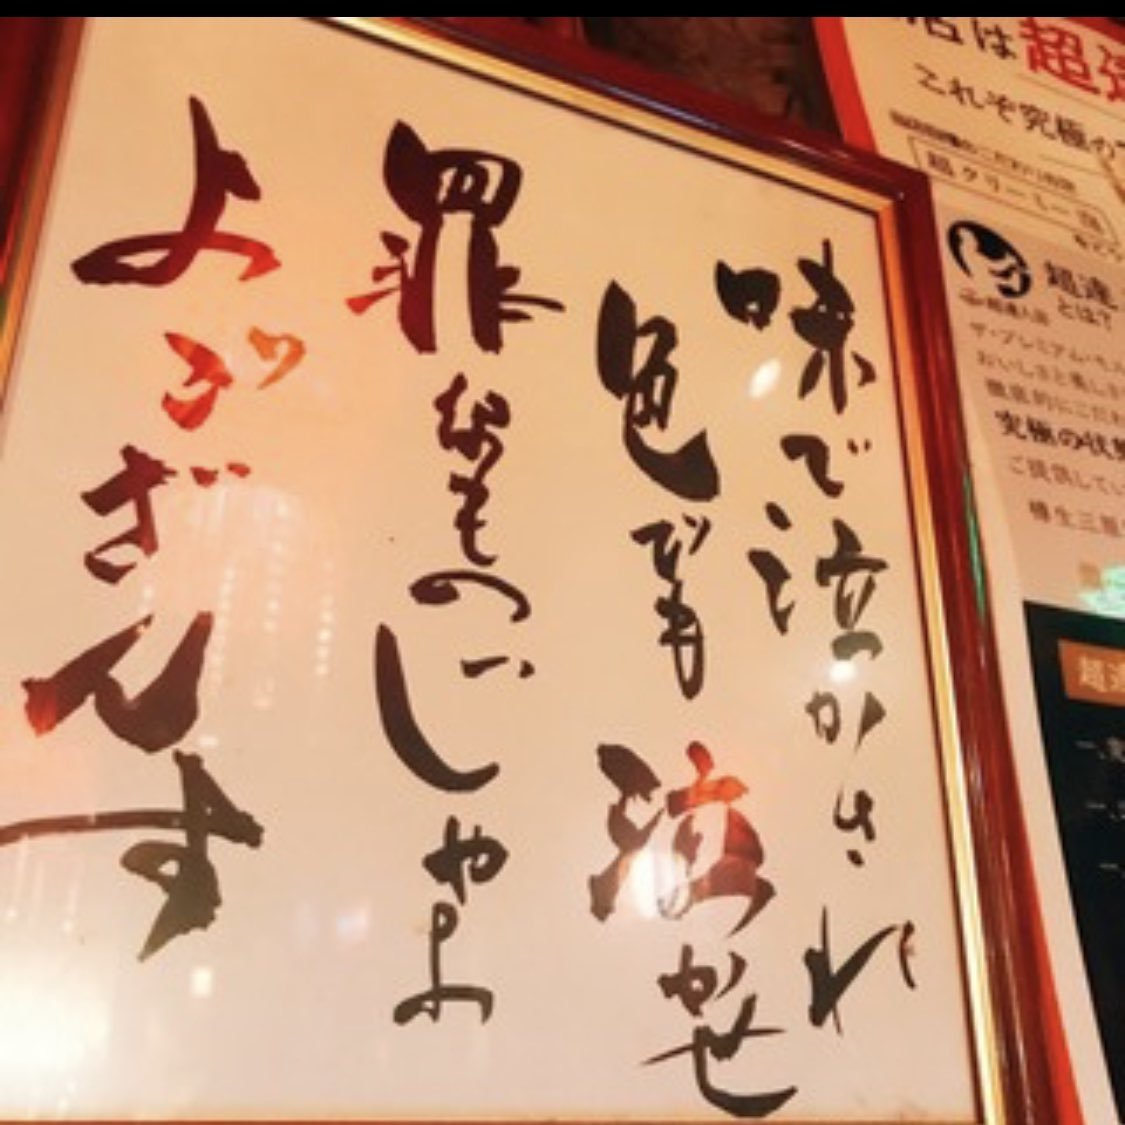 味で泣かされ
色でも泣かせ
罪なものじゃよ
よぶざんす
店は超達
これぞ究極の
超クリーミー泡
超達
とは?
ザ・プレミアム・モル
おいしさと楽しさ
徹底的にこだわ
究極の状態
ご提供してい
樽生三原
超達